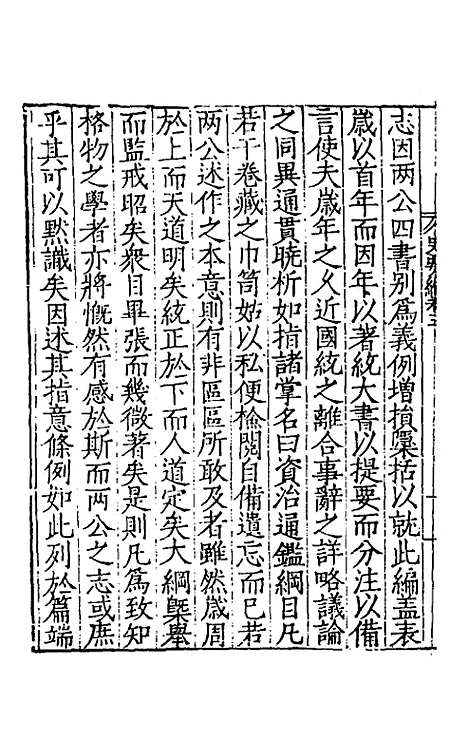 志因两公四書别為義例増損櫽括以就此編盖表
歲以首年而因年以著統大書以提要而分注以備
言使夫歲年之乆近國統之離合事辭之詳略議論
之同異通貫曉析如指諸掌名曰資治通鑑綱目凡
若干卷藏之巾笥姑以私便檢閱自備遺忘而已若
两公述作之本意則有非區區所敢及者雖然歲周
於上而天道明矣統正於下而人道定矣大綱槩舉
而監戒昭矣衆目畢張而幾微著矣是則凡為致知
格物之學者亦將慨然有感於斯而两公之志或庶
乎其可以黙識矣因述其指意條例如此列於篇端